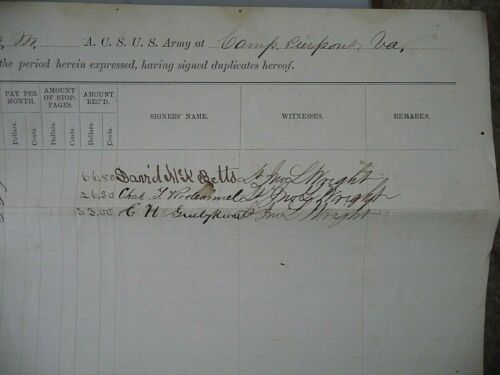 M. A. C. S. U. S. Army at Camp Pierpont, Va.
the period herein expressed, having signed duplicates hereof.
PAY PER MONTH. AMOUNT OF STOP-PAGES. AMOUNT REC'D. SIGNERS' NAME. WITNESSES. REMARKS.
Dollars. Cents. Dollars. Cents. Dollars. Cents.
66.80 David N K Betts Lt Jno L Wright
26.50 Chas T Lt Jno L Wright
33.00 E H Lt Jno L Wright